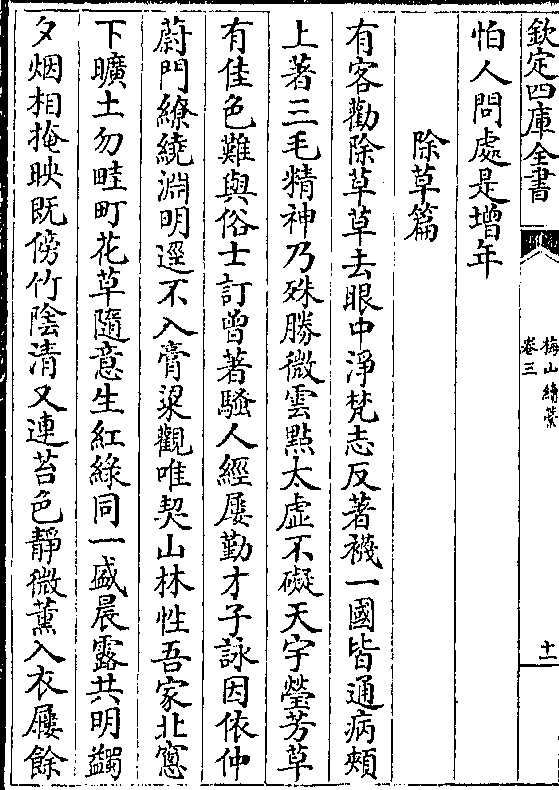 欽定四庫全書
梅山續稾
卷三
十一
怕人問處是增年
除草篇
有客勸除草草去眼中淨梵志反著襪一國皆通病頰
上著三毛精神乃殊勝微雲點太虛不礙天宇瑩芳草
有佳色難與俗士訂曾著騷人經屢勤才子詠因依仲
蔚門繚繞淵明逕不入膏粱觀唯契山林性吾家北窻
下曠土勿畦町花草隨意生紅綠同一盛晨露共明蠲
夕烟相掩映既傍竹陰清又連苔色靜微薰入衣屨餘